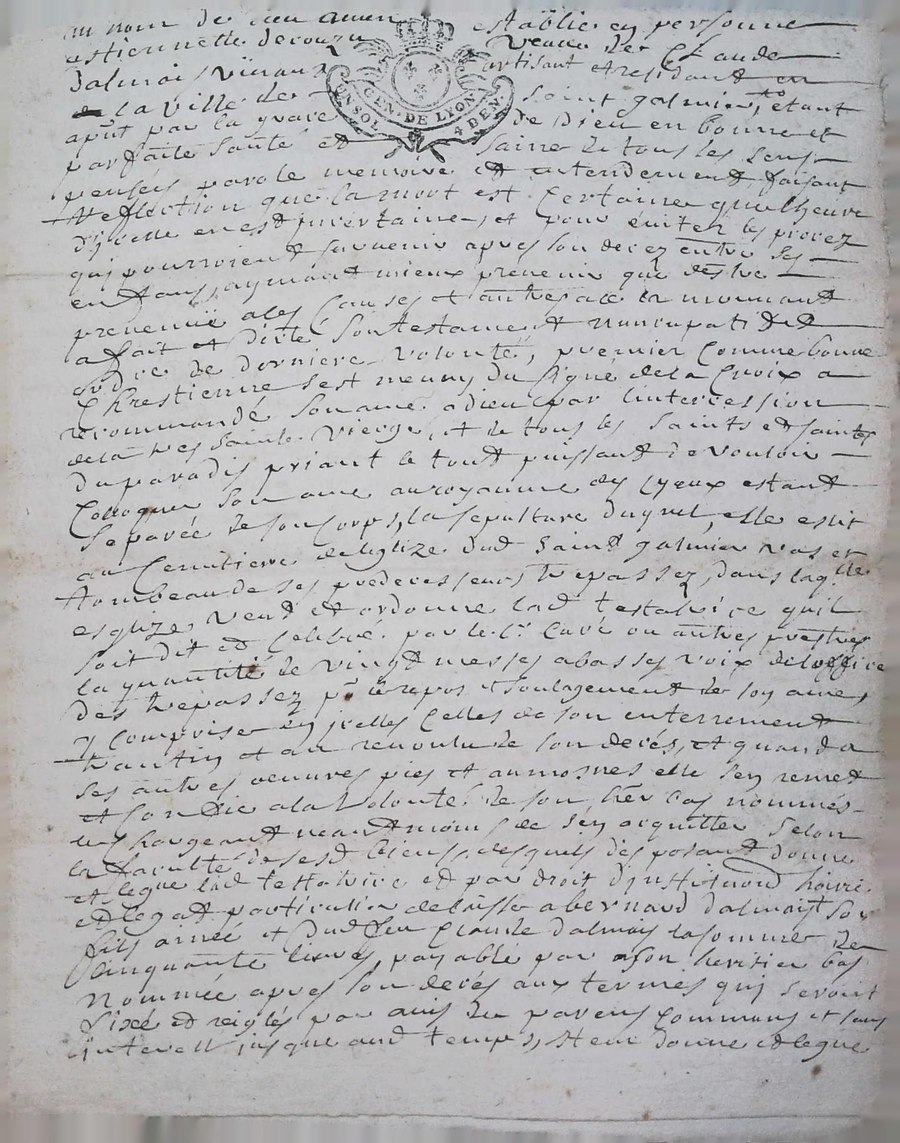 au nom de dieu amen establie en personne
estiennette decouzu veuve de Claude
dalmais vivant artisant et residant en
la ville de saint galmier, étant
GEN. DE LYON
UN SOL 4 DEN.
par la grace de Dieu en bonne et
parfaite santé et saine de tous les sens
pensées parole memoire et entendement faisant
Reflection que la mort est certaine que lheure
dicelle en est incertaine, et pour eviter les procez
qui pourroient survenir apres son decez entre ses
enfans, aymant mieux prevenir que destre
prevenüe a les causes et autres ace la mouvant
a fait et dicté son testament nuncupatif et
ordre de derniere volonté, premier comme bonne
Chrestienne sest munÿ du signe de la Croix a
recommandé son ame a dieu par lintercession
de la tres sainte Vierge, et de tous les saints et saintes
du paradis priant le tout puissant de vouloir
Colloquer son ame au royaume des cyeux estant
separée de son corps, la sepulture duquel, elle eslit
au Cemitiere de leglize dud saint galmier vas et
tombeau de ses predecesseurs trepassez, dans laq.lle
esglize veut et ordonne lad testatrice quil
soit dit et celebré par le Sr Curé ou autres prestres
la quantité de vingt messes a basses voix de loffice
des trepassez pr le repos et soulagement de son ame,
y comprise en jcelles celles de son enterrement
quarantin et au revoulu de son decés, et quand a
ses autres oeuvres pies et aumosnes elle sen remet
et se fie a la volonté de son her bas nommés
les chargeant neantmoins de sen acquitter selon
la faculté de sesd biens, desquels disposant donne
et legue lad testatrice et par droit dinstitution hoirie
et legat particulier delaisse a bernard dalmais son
fils ainée et dud feu Claude dalmais la somme de
Cinquante livres, payable par son heritier bas
nommée apres son decés aux termes qui seront
fixé et reiglés par avis de parens communs et sans
interest jusque aud temps, Item donne et legue